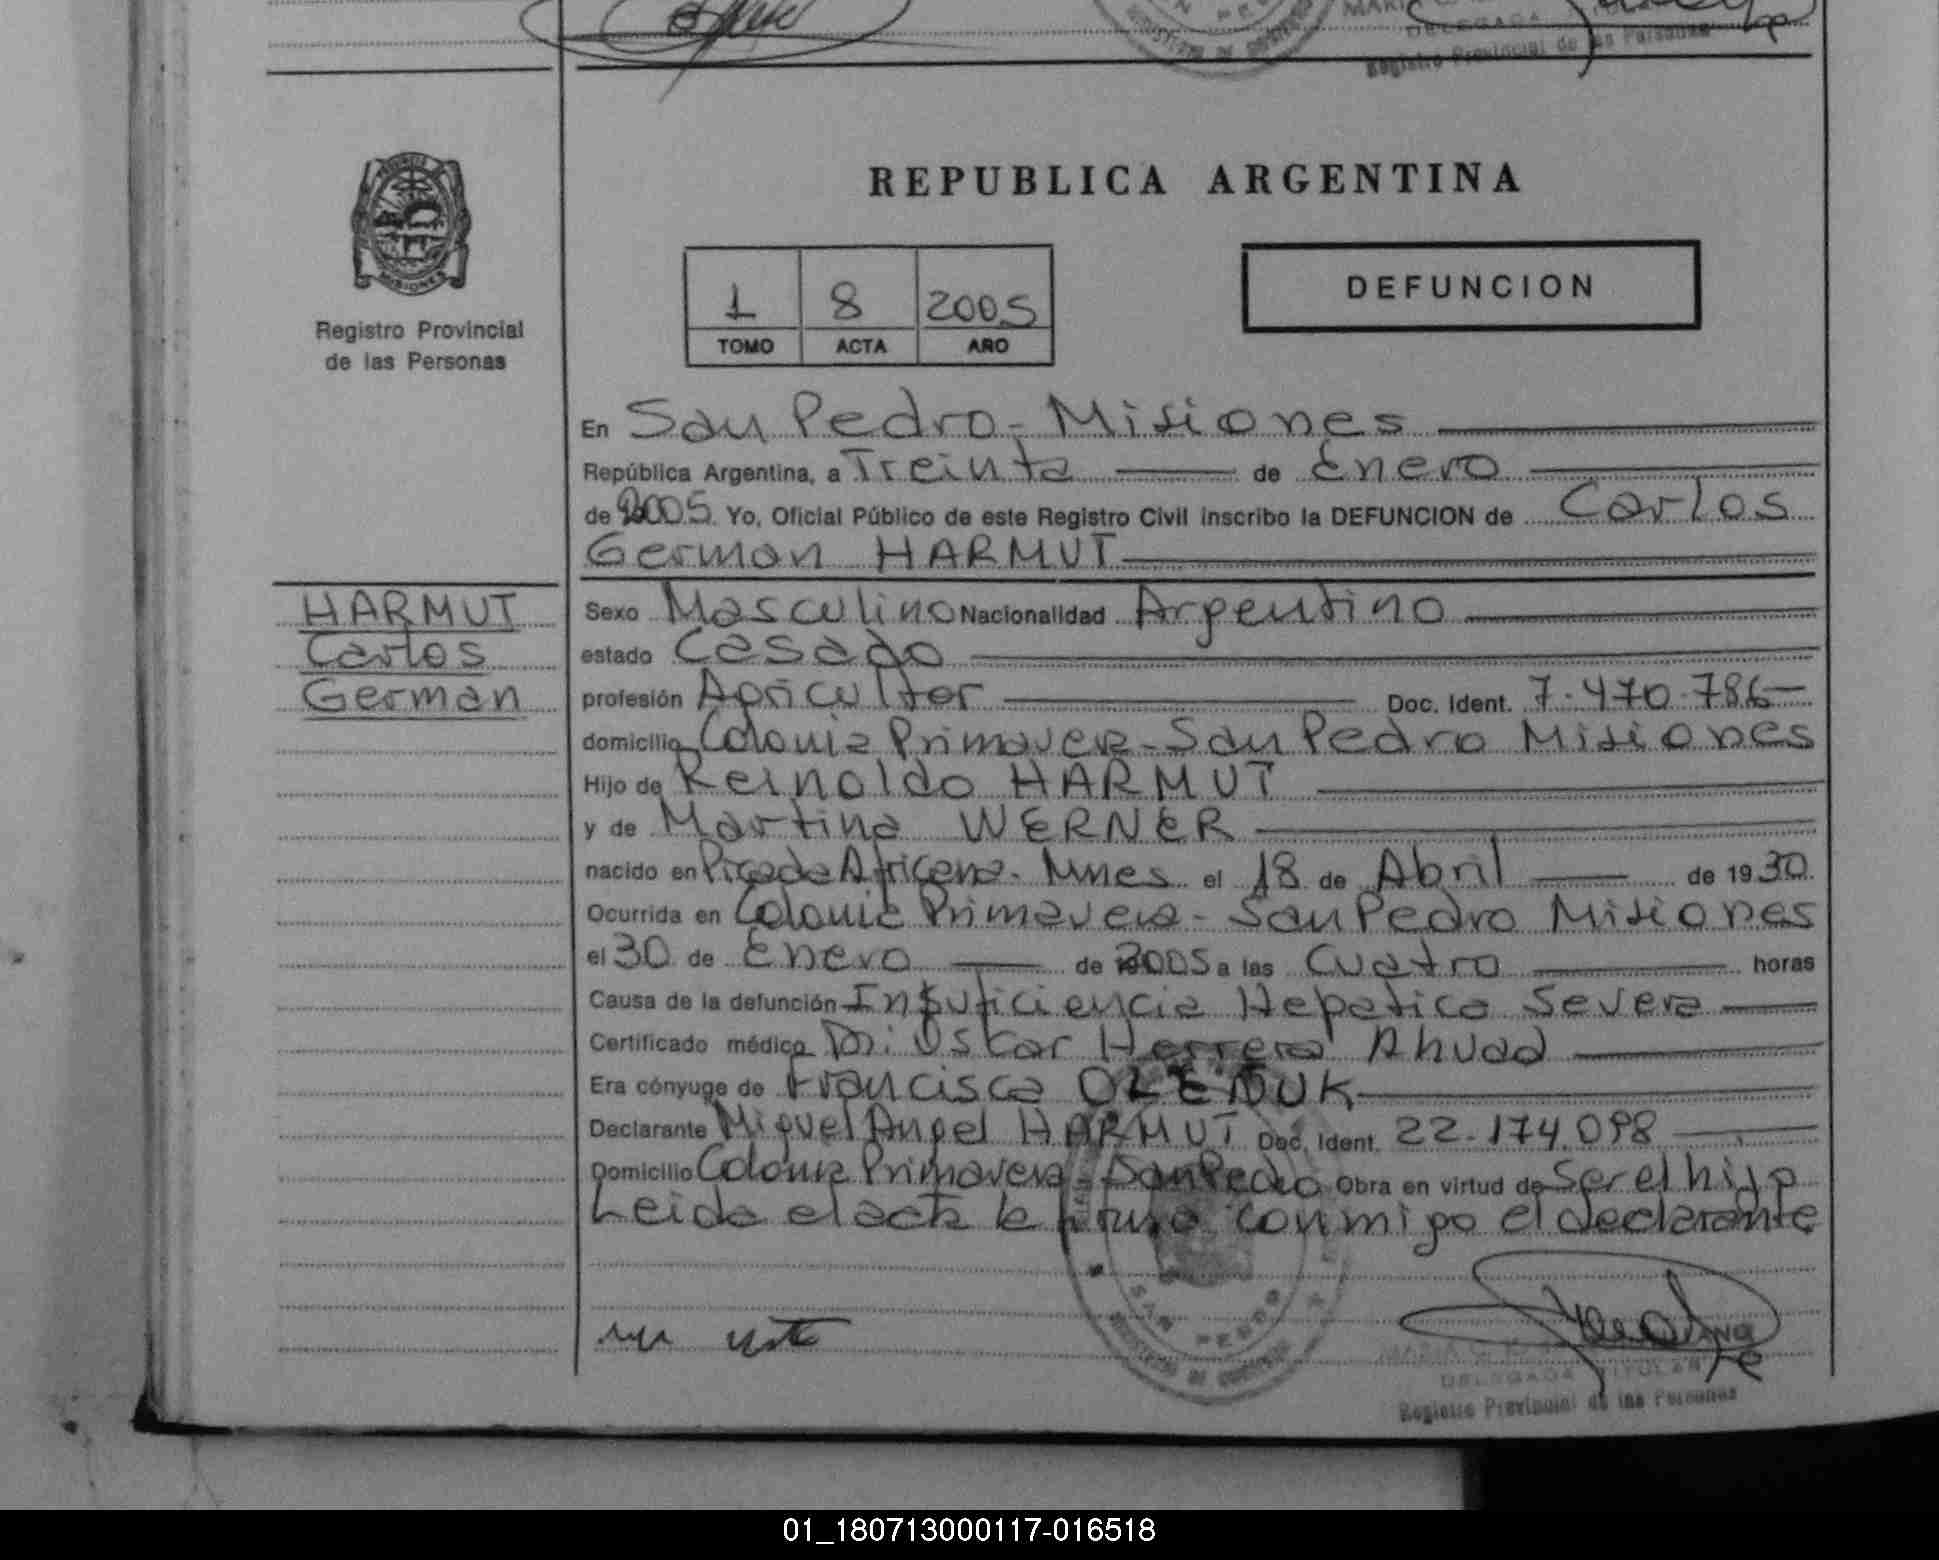 Registro Provincial de las Personas
PROVINCIA DE
MISIONES
Registro Provincial
de las Personas
REPUBLICA ARGENTINA
1 8 2005
TOMO ACTA AÑO
DEFUNCION
En San Pedro - Misiones
República Argentina, a Treinta de Enero
de 2005. Yo, Oficial Público de este Registro Civil inscribo la DEFUNCION de Carlos
German HARMUT
HARMUT
Carlos
German
Sexo Masculino Nacionalidad Argentino
estado Casado
profesión Agricultor Doc. Ident. 7.470.786
domicilio Colonia Primavera - San Pedro Misiones
Hijo de Reinoldo HARMUT
y de Martina WERNER
nacido en Picada Africana - Mnes el 18 de Abril de 1930.
Ocurrida en Colonia Primavera - San Pedro Misiones
el 30 de Enero de 2005 a las Cuatro horas
Causa de la defunción Insuficiencia Hepatica Severa
Certificado médico Dr. Oscar Herrera Ahuad
Era cónyuge de Francisca OLENUK
Declarante Miguel Angel HARMUT Doc. Ident. 22.174.098
Domicilio Colonia Primavera - San Pedro Obra en virtud de Ser el hijo
Leida el acta la firma conmigo el declarante
SAN PEDRO
DELEGADA TITULAR
Registro Provincial de las Personas
01_180713000117-016518